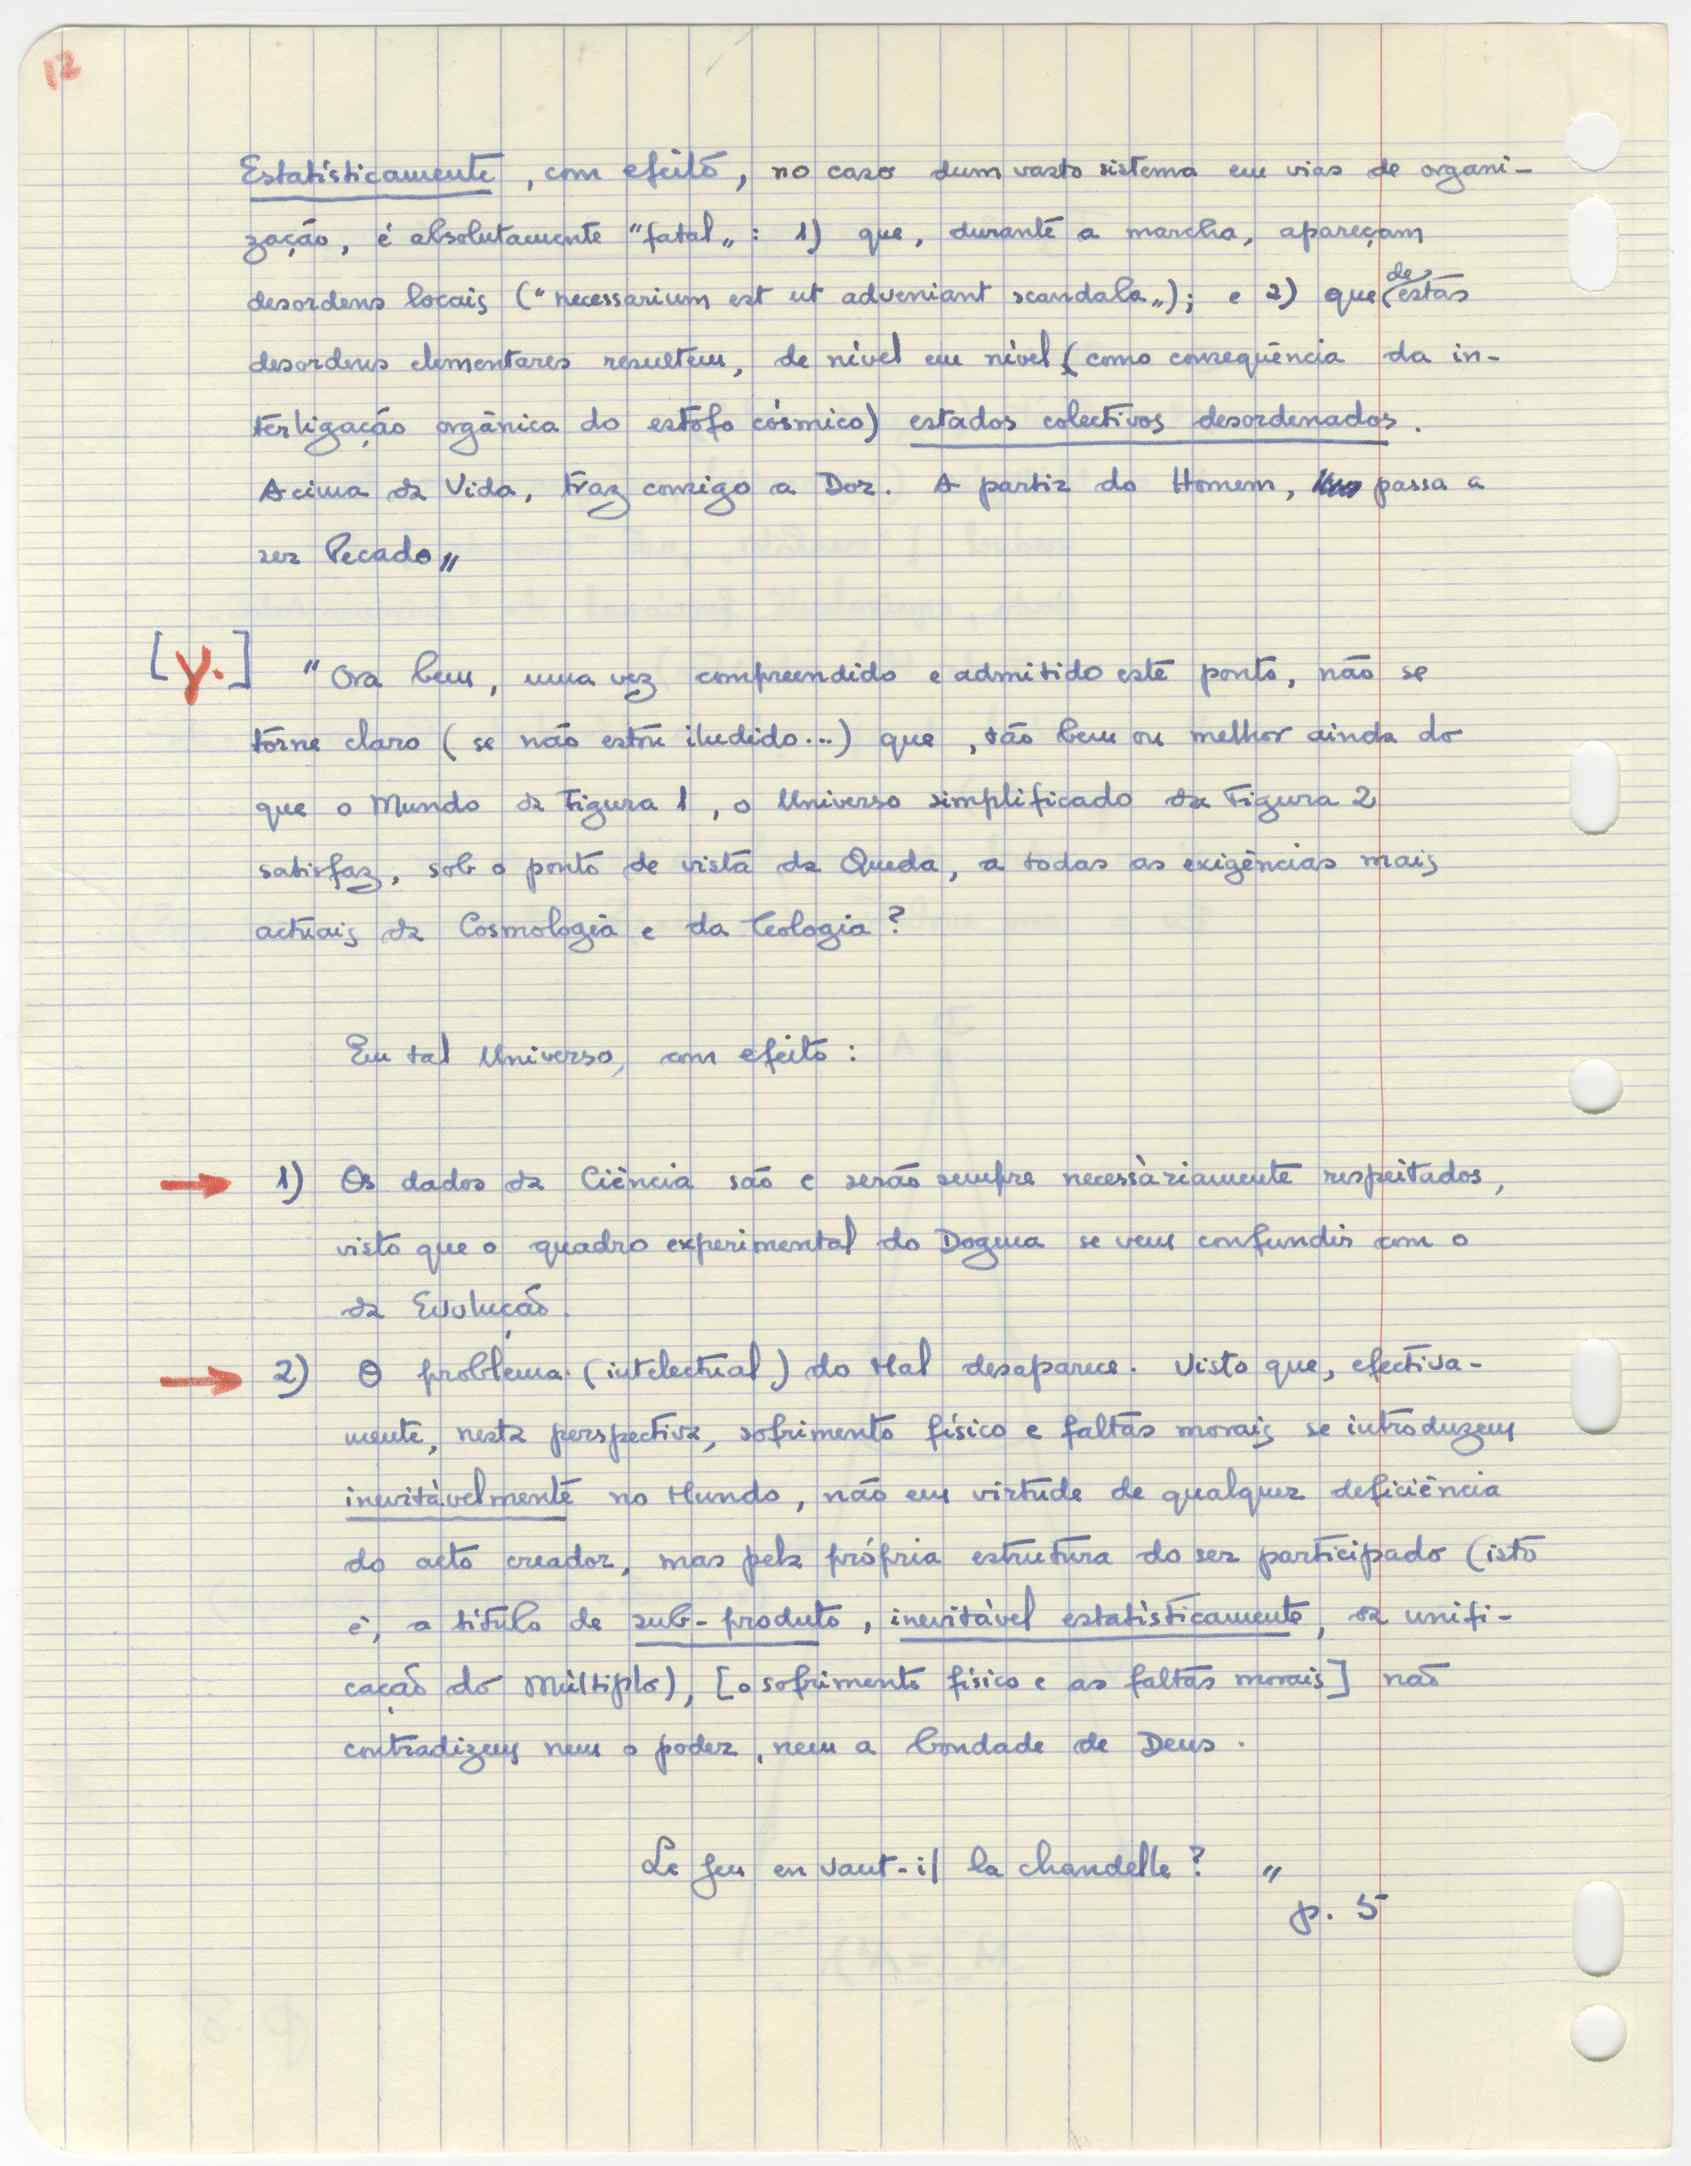 12
Estatìsticamente, com efeito, no caso dum vasto sistema em vias de organi-
zação, é absolutamente "fatal„ : 1) que, durante a marcha, apareçam
desordens locais ("necessarium est ut adveniant scandala„); e 2) que
des
estas
desordens elementares resultem, de nível em nível (como consequência da in-
terligação orgânica do estofo cósmico) estados colectivos desordenados.
Acima da Vida, traz consigo a Dor. A partir do Homem, passa a
ser Pecado„
[γ.] "Ora bem, uma vez compreendido e admitido este ponto, não se
torna claro (se não estou iludido...) que, tão bem ou melhor ainda do
que o Mundo da Figura 1, o Universo simplificado da Figura 2
satisfaz, sob o ponto de vista da Queda, a todas as exigências mais
actuais da Cosmologia e da Teologia?
Em tal Universo, com efeito:
→ 1) Os dados da Ciência são e serão sempre necessàriamente respeitados,
visto que o quadro experimental do Dogma se vem confundir com o
da Evolução.
→ 2) O problema (intelectual) do Mal desaparece. Visto que, efectiva-
mente, nesta perspectiva, sofrimento físico e faltas morais se introduzem
inevitàvelmente no Mundo, não em virtude de qualquer deficiência
do acto creador, mas pela própria estrutura do ser participado (isto
é, a título de sub-produto, inevitável estatìsticamente, da unifi-
cação do Múltiplo), [o sofrimento físico e as faltas morais] não
contradizem nem o poder, nem a bondade de Deus.
Le jeu en vaut-il la chandelle? „
p. 5